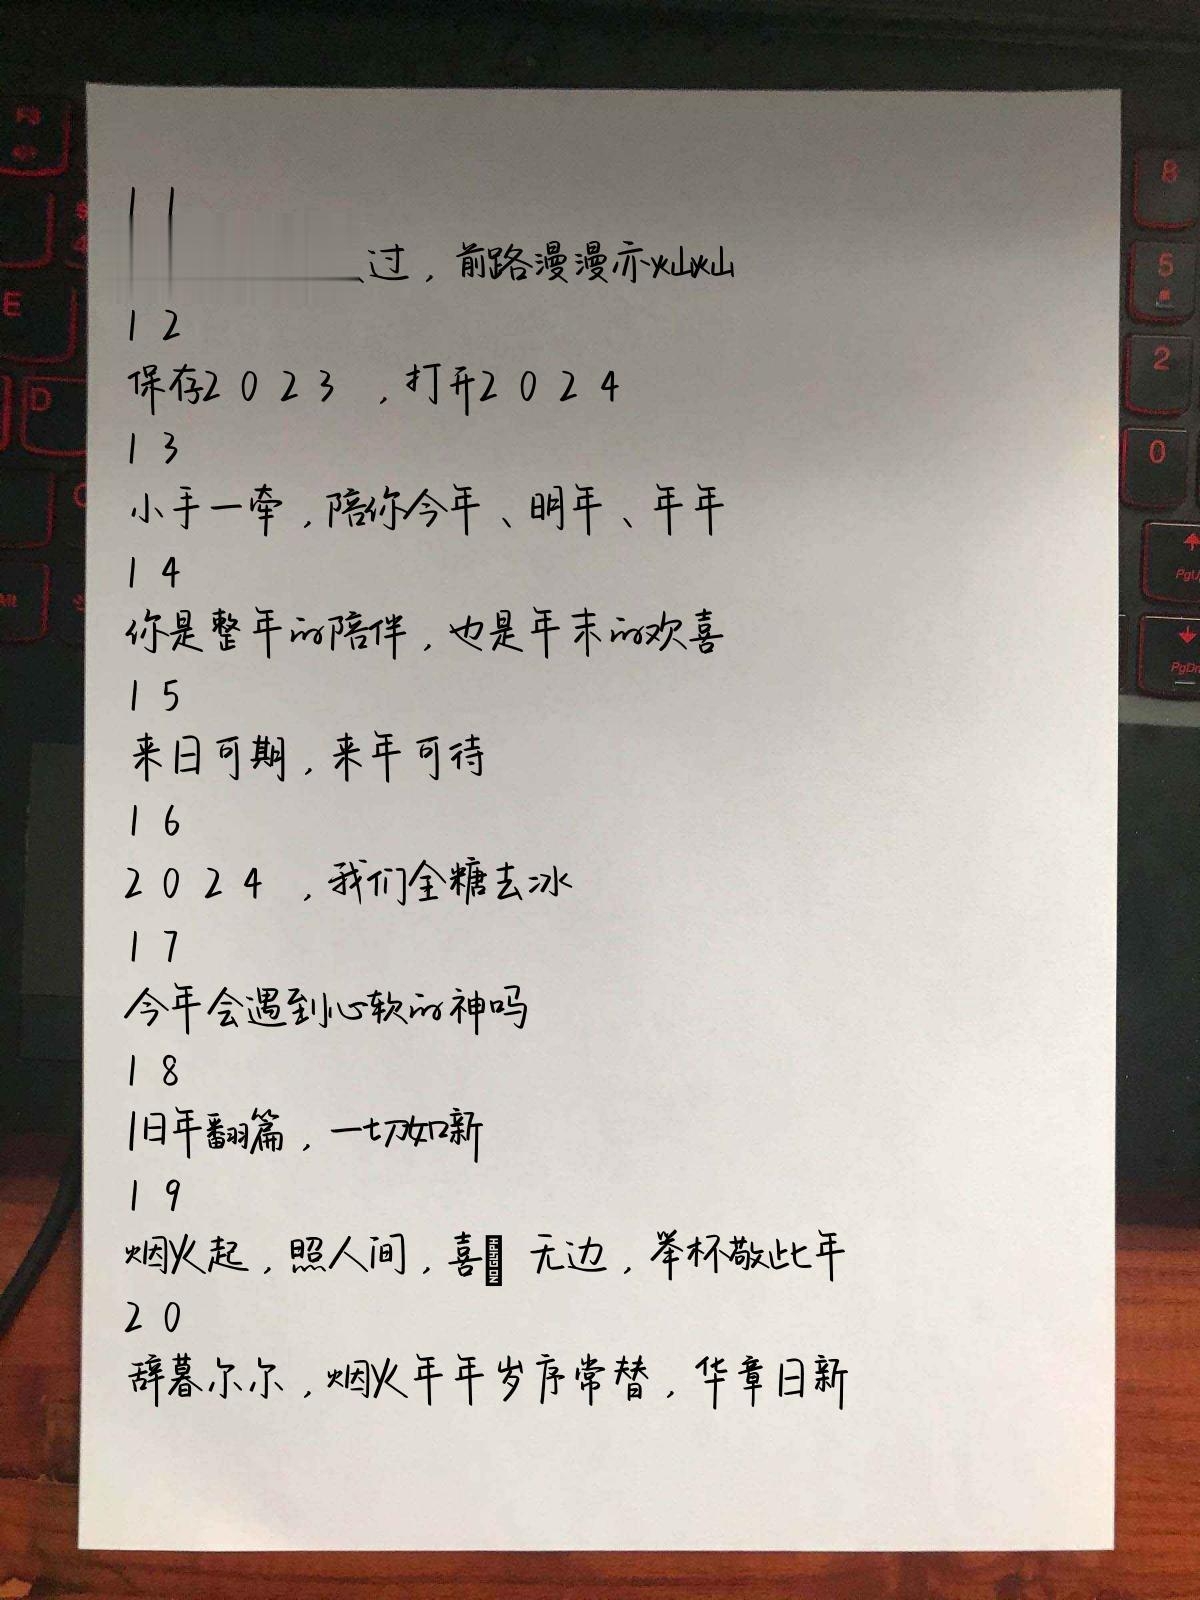 11
过，前路漫漫亦灿灿
12
保存2023，打开2024
13
小手一牵，陪你今年、明年、年年
14
你是整年的陪伴，也是年末的欢喜
15
来日可期，来年可待
16
2024，我们全糖去冰
17
今年会遇到心软的神吗
18
旧年翻篇，一切如新
19
烟火起，照人间，喜 无边，举杯敬此年
20
辞暮尔尔，烟火年年岁序常替，华章日新
8
5
2
0
PgU
PgDn
E
D